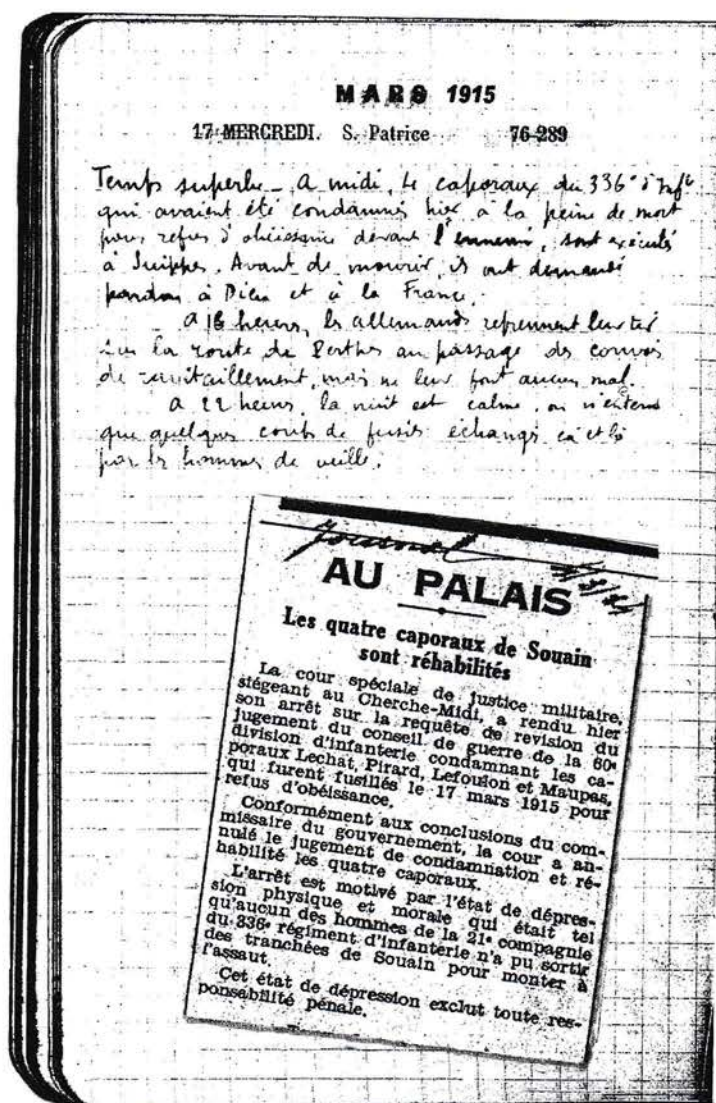 MARS 1915
17 MERCREDI. S. Patrice 76-289
Temps superbe - A midi, le caporaux du 336e d'Infie
qui avaient été condamnés hier à la peine de mort
pour refus d'obéissance devant l'ennemi, sont exécutés
à Suippes. Avant de mourir, ils ont demandé
pardon à Dieu et à la France.
A 16 heures, les allemands reprennent leur tir
sur la route de Perthes au passage des convois
de ravitaillement, mais ne leur font aucun mal.
A 22 heures, la nuit est calme, on n'entend
que quelques coups de fusils échangés çà et là
par les hommes de veille.
Journal
AU PALAIS
Les quatre caporaux de Souain
sont réhabilités
La cour spéciale de justice militaire,
siégeant au Cherche-Midi, a rendu hier
son arrêt sur la requête de revision du
jugement du conseil de guerre de la 60e
division d'infanterie condamnant les ca-
poraux Lechat, Pirard, Lefoulon et Maupas,
qui furent fusillés le 17 mars 1915 pour
refus d'obéissance.
Conformément aux conclusions du com-
missaire du gouvernement, la cour a an-
nulé le jugement de condamnation et ré-
habilité les quatre caporaux.
L'arrêt est motivé par l'état de dépres-
sion physique et morale qui était tel
qu'aucun des hommes de la 21e compagnie
du 336e régiment d'infanterie n'a pu sortir
des tranchées de Souain pour monter à
l'assaut.
Cet état de dépression exclut toute res-
ponsabilité pénale.